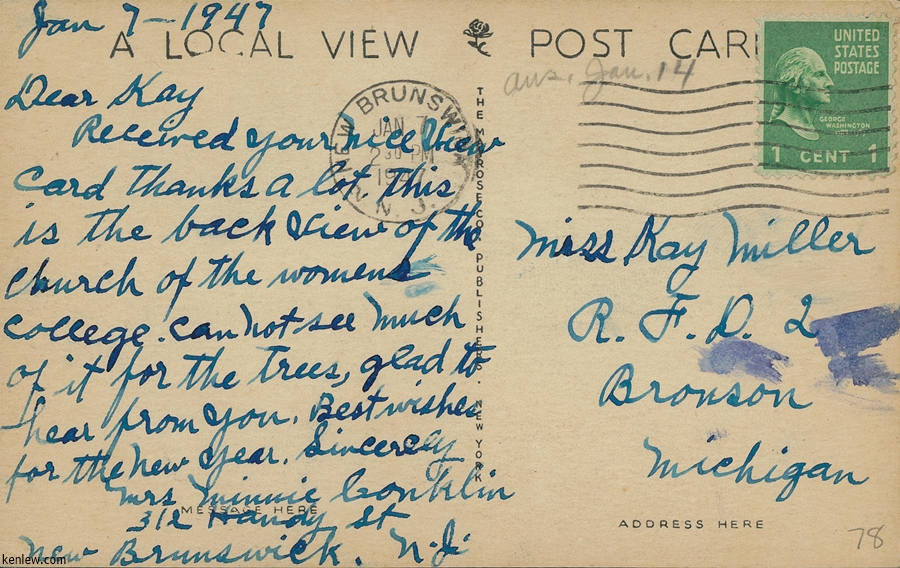 Jan 7-1947
A LOCAL VIEW
POST CARD
ans. Jan. 14
UNITED
STATES
POSTAGE
GEORGE
WASHINGTON
1 CENT 1
NEW BRUNSWICK
JAN 7
2 30 PM
1947
N. J.
Dear Kay
Received your nice View
Card thanks a lot. This
is the back View of the
Church of the womens
College. Can not see much
of it for the trees, glad to
hear from you. Best wishes
for the New Year. Sincerely
Mrs Minnie Conklin
312 Handy St
New Brunswick. N.J.
MESSAGE HERE
THE MELROSE CO. PUBLISHERS. NEW YORK
Miss Kay Miller
R. F. D. 2
Bronson
Michigan
ADDRESS HERE
78
kenlew.com